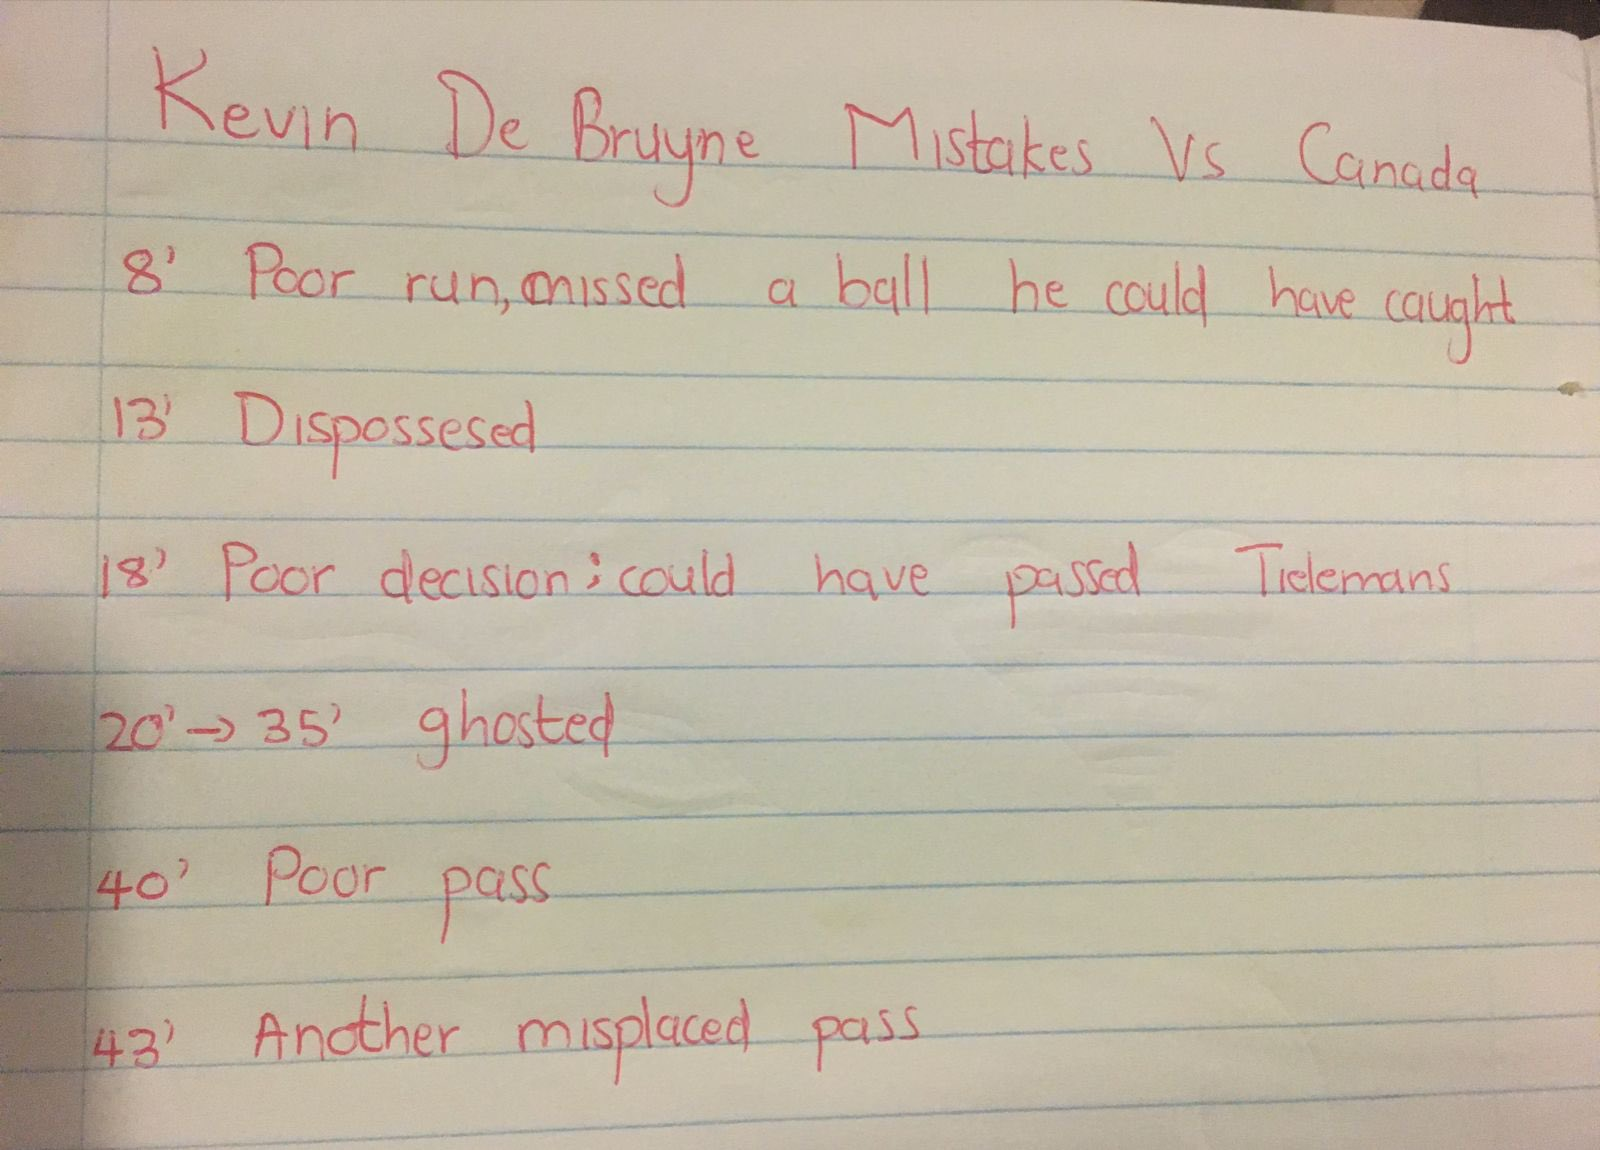 Kevin De Bruyne Mistakes Vs Canada
8' Poor run, missed a ball he could have caught
13' Dispossesed
18' Poor decision: could have passed Tielemans
20' → 35' ghosted
40' Poor pass
43' Another misplaced pass